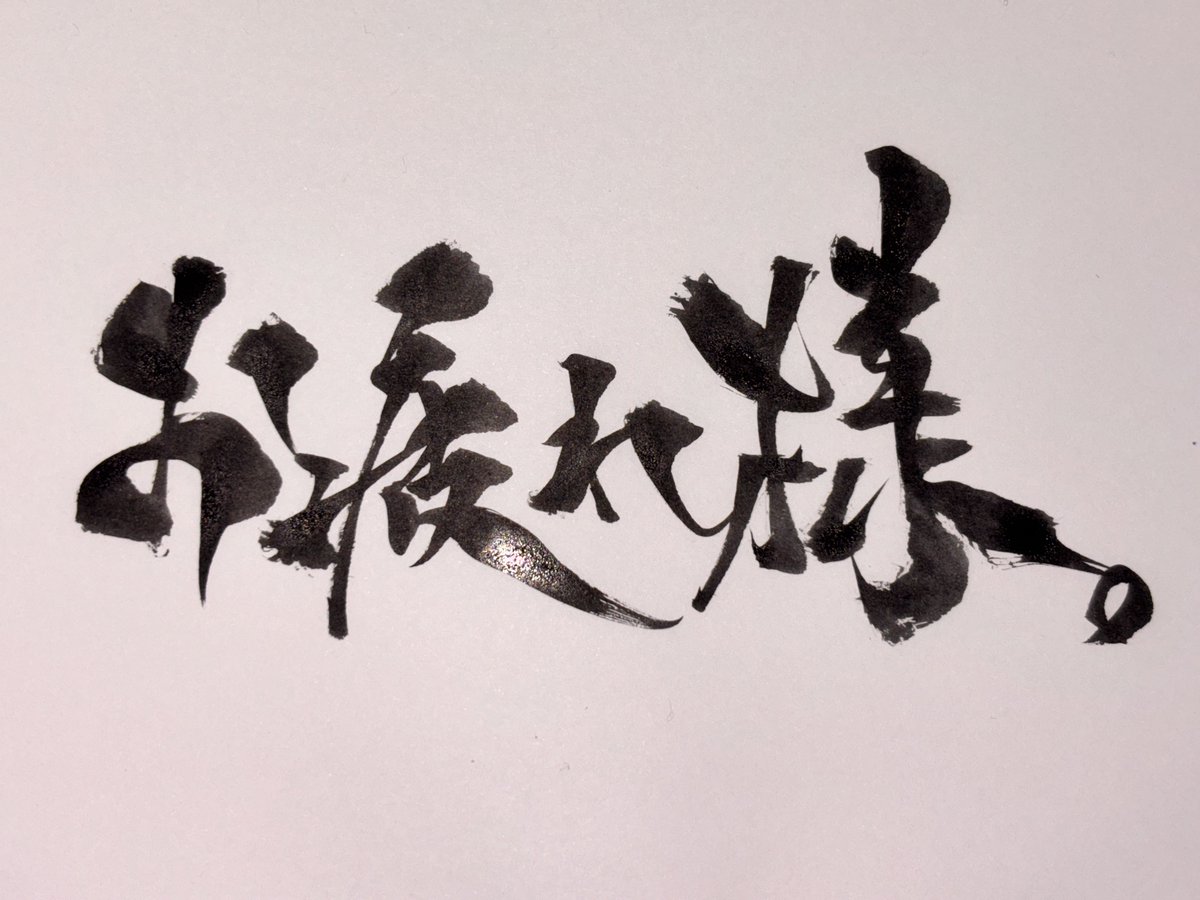 お疲れ様。